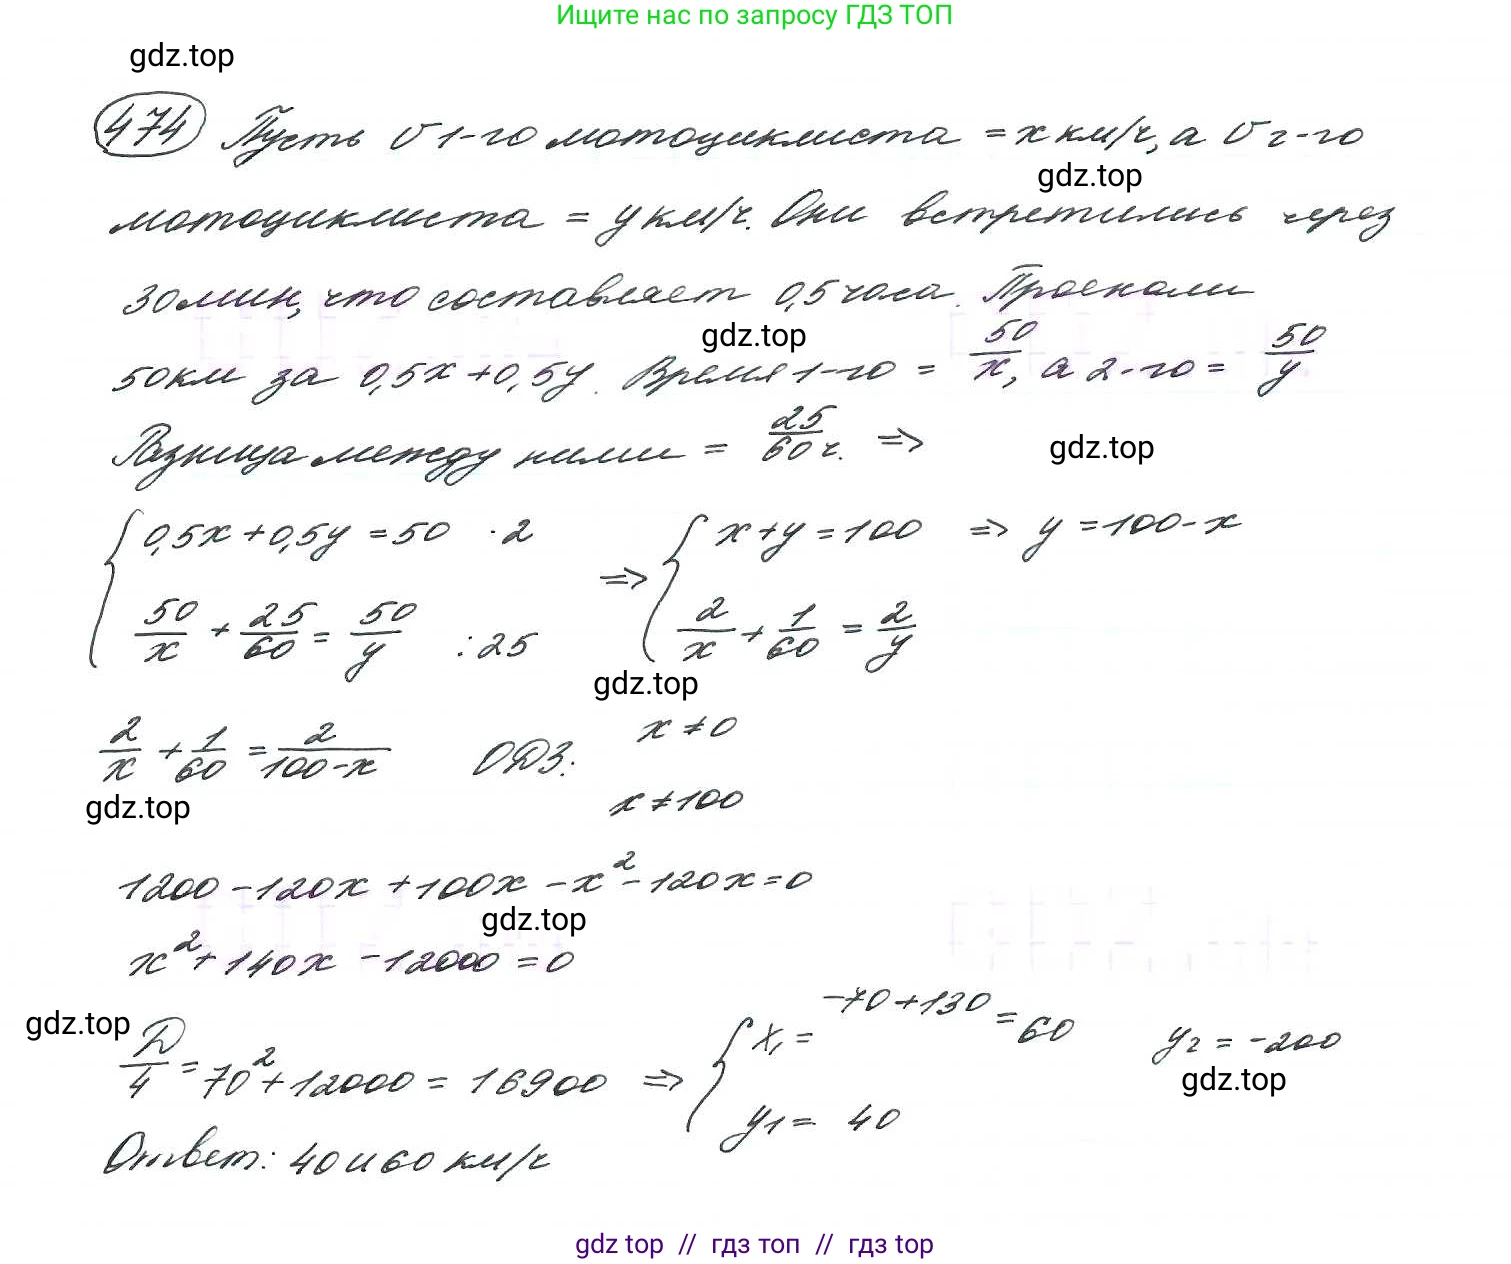 Ищите нас по запросу ГДЗ ТОП
gdz.top
474 Пусть v 1-го мотоциклиста = x км/ч, а v 2-го
gdz.top
мотоциклиста = y км/ч. Они встретились через
30 мин, что составляет 0,5 часа. Проехали
gdz.top
50 км за 0,5x + 0,5y. Время 1-го = 50/x, а 2-го = 50/y
Разница между ними = 25/60 ч. =>
gdz.top
{ 0,5x + 0,5y = 50 · 2 => { x + y = 100 => y = 100 - x
50/x + 25/60 = 50/y : 25 2/x + 1/60 = 2/y
gdz.top
2/x + 1/60 = 2/(100-x) ОДЗ: x ≠ 0
x ≠ 100
gdz.top
1200 - 120x + 100x - x² - 120x = 0
gdz.top
x² + 140x - 12000 = 0
gdz.top
D/4 = 70² + 12000 = 16900 => { x₁ = -70 + 130 = 60 y₂ = -200
y₁ = 40
gdz.top
Ответ: 40 и 60 км/ч
gdz top // гдз топ // гдз top